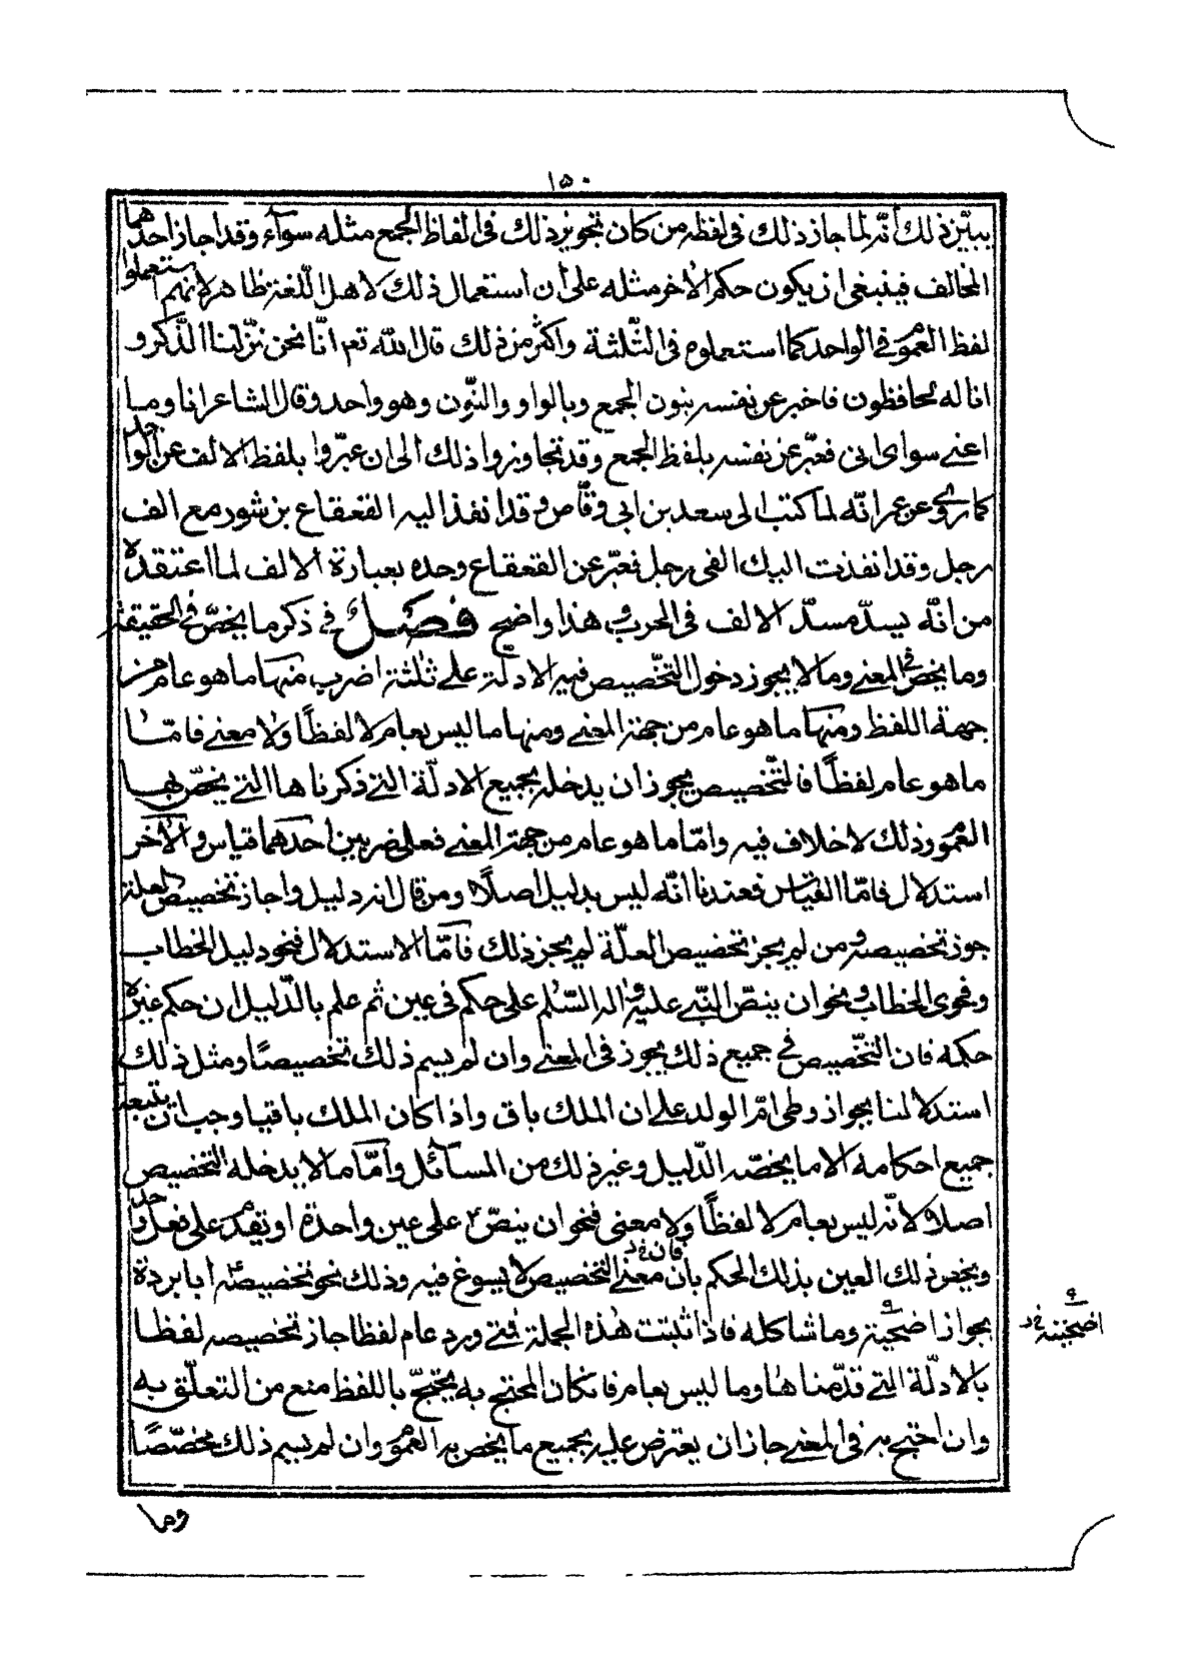 ١٥٠
يبيّن ذلك أنّه لما جاز ذلك في لفظة من كان تجويز ذلك في الفاظ الجمع مثله سوآء وقد اجاز احدهما
المخالف فينبغي ان يكون حكم الأخر مثله على أن استعمال ذلك لاهل اللّغة ظاهر لانهم استعملوا
لفظ العموم في الواحد كما استعملوه في الثّلثة واكثر من ذلك قال الله تعم انّا نحن نزّلنا الذّكر و
انا له لحافظون فاخبر عن نفسه بنون الجمع وبالواو والنّون وهو واحد وقال الشاعر انا وما
اعنى سواى انى فعبّر عن نفسه بلفظ الجمع وقد تجاوزوا ذلك الى ان عبّروا بلفظ الالف عن الواحد
كما روى عن عمر انّه لما كتب الى سعد بن ابى وقّاص وقد انفذ اليه القعقاع بن شور مع الف
رجل وقد انفذت اليك الفى رجل فعبّر عن القعقاع وحده بعبارة الالف لما اعتقده
من انّه يسدّ مسدّ الالف في الحروب وهذا واضح فصل في ذكر ما يخصّ في الحقيقة
وما يخص في المعنى وما لا يجوز دخول التّخصيص فيه الادلة على ثلثة اضرب منها ما هو عام من
جهة اللفظ ومنها ما هو عام من جهة المعنى ومنها ما ليس بعام لا لفظًا ولا معنى فامّا
ما هو عام لفظًا فالتّخصيص يجوز ان يدخله بجميع الادلّة التى ذكرناها التى يخصّ بها
العموم وذلك لا خلاف فيه وامّا ما هو عام من جهة المعنى فعلى ضربين احدهما قياس والآخر
استدلال فامّا القياس فعندنا انّه ليس بدليل اصلًا ومن قال انه دليل واجاز تخصيص العلة
جوز تخصيصه ومن لم يجز تخصيص العلّة لم يجز ذلك فامّا الاستدلال فنحو دليل الخطاب
وفحوى الخطاب ونحو ان ينصّ النّبى عليه واله السّلم على حكم فى عين ثم علم بالدّليل ان حكم غيره
حكمه فان التخّصيص فى جميع ذلك يجوز فى المعنى وان لم يسم ذلك تخصيصًا ومثل ذلك
استدلالنا بجواز وطى امّ الولد على ان الملك باق واذا كان الملك باقيا وجب ان يتبعه
جميع احكامه الا ما يخصّه الدّليل وغير ذلك من المسآئل وأمّا ما لا يدخله التخصيص
اصلا لانّه ليس بعام لا لفظًا ولا معنى فنحو ان ينصّ على عين واحدة او يقدم على فعل واحد
ويخص ذلك العين بذلك الحكم بان معنى التخصيص لا يسوغ فيه وذلك نحو تخصيصه ابا بردة
فان خ‌د
بجواز اضحية وما شاكله فاذا ثبتت هذه الجملة فتى ورد عام لفظا جاز تخصيصه لفظا
اضحيته خ‌د
بالادلّة التى قدّمناها وما ليس بعام فان كان المحتج به يحتجّ باللفظ منع من التعلّق به
وان احتج به فى المعنى جاز ان يعترض عليه بجميع ما يخص به العموم وان لم يسم ذلك مخصّصًا
وما